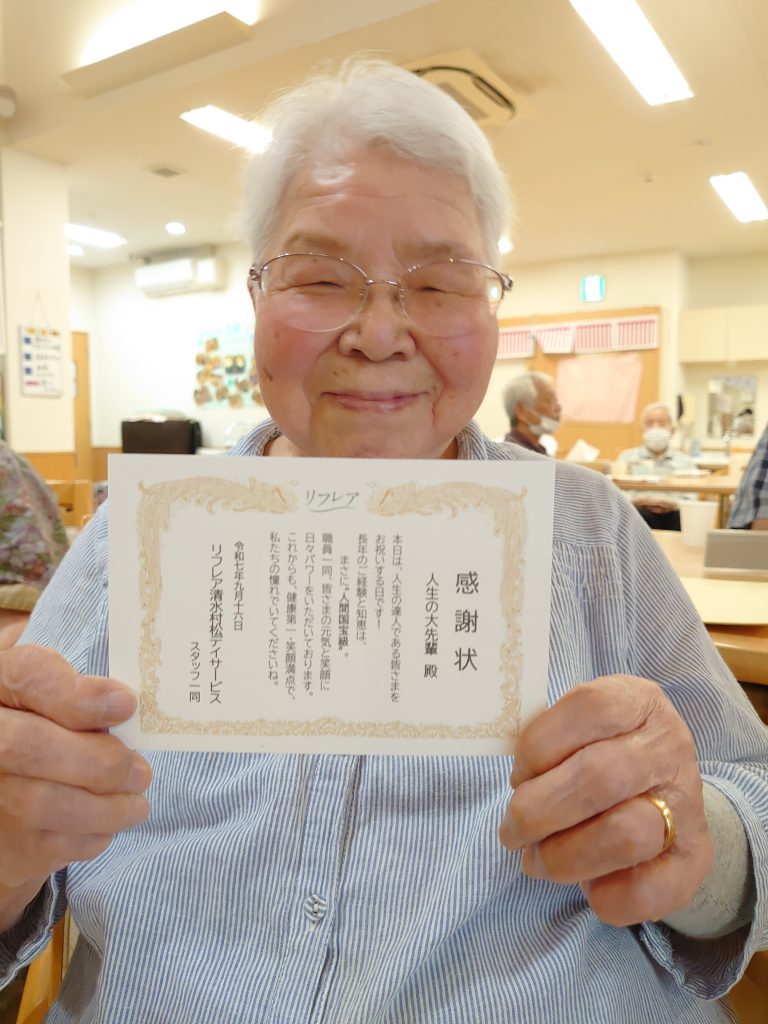 リフレア
感謝状
人生の大先輩 殿
本日は、人生の達人である皆さまを
お祝いする日です！
長年のご経験と知恵は、
まさに“人間国宝級”。
職員一同、皆さまの元気と笑顔に
日々パワーをいただいております。
これからも、健康第一・笑顔満点で、
私たちの憧れでいてくださいね。
令和七年九月十六日
リフレア清水村松デイサービス
スタッフ一同